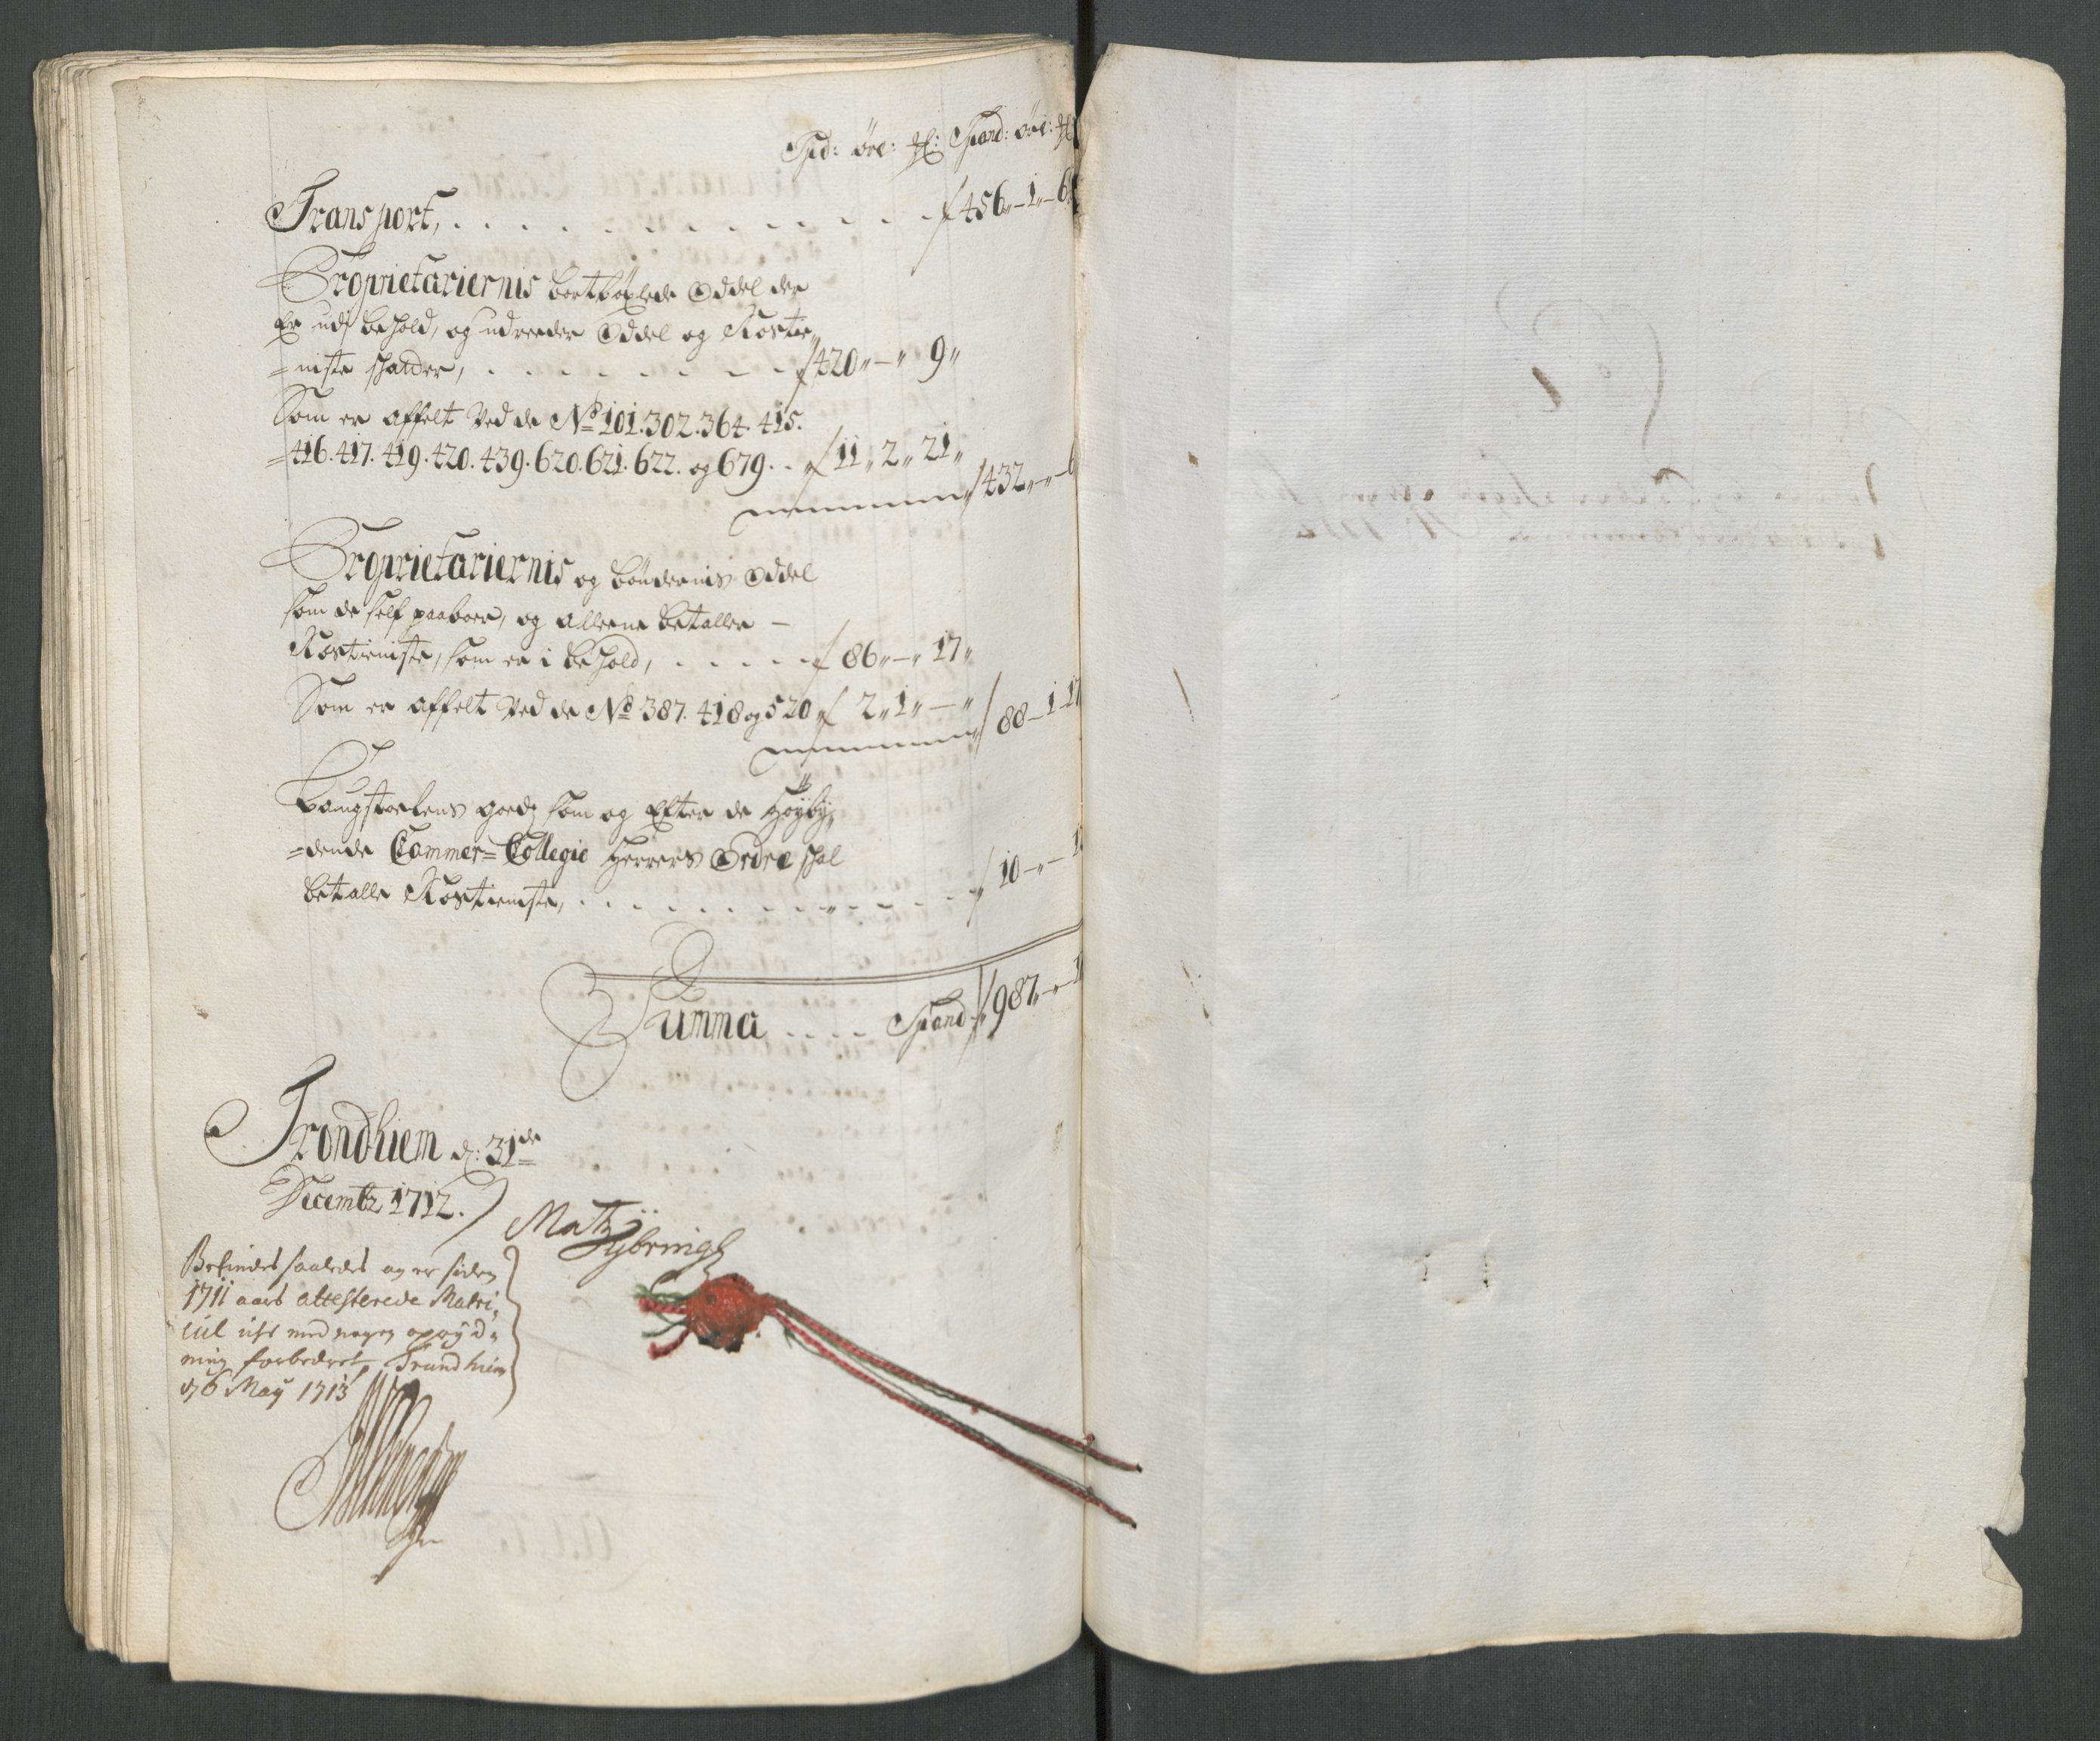 Spd: øre: ꝉ: Spand: øre:
Transport, 456 „ – 1 „ – 6
Proprietariernis bortböxlede Oddel der
Er udi behold, og udreeder Oddel og Rostie„
=niste schatder, 420 „ – „ 9 „
Som er affelt Ved de No 101. 302. 364. 415.
=416. 417. 419. 420. 439. 620. 621. 622. og 679. 11 „ 2 „ 21 „
432 „ – „ – 6
Proprietariernis og böndernis Oddel
som de self paaboer, og alleene betaller –
Rostieniste, som er i behold, 86 „ – „ 17 „
Som er affelt Ved de No 387. 418 og 520 „ 2 „ 1 „ – „
88 – 1 – 17
Laugstoelens goedz som og Efter de Höÿbÿ„
=dende Cammer= Collegie Herrers Ordre schal
betalle Rostieniste, 10 – „ –
Summa Spand 987 „ – „ –
Trondhiem d: 31de
Decembr 1712.
Matz Nÿbringh
Befindes saaledes og er siden
1711 aars attesterede Matri„
cul iche med nogen oprÿd„
ning forbedret, Trundhiem
d 6 Maÿ 1713